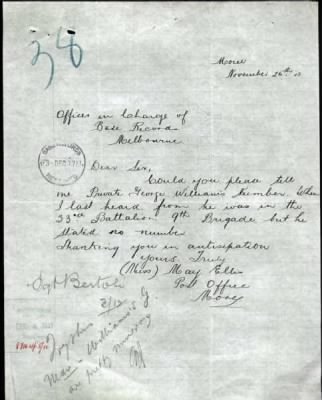 38
Moree
November 26th
Officer in Charge of
Base Records
Melbourne
Dear Sir,
Could you please tell
me Private George Williams number. When
I last heard from he was in the
33rd Battalion 9th Brigade but he
stated no number
Thanking you in anticipation
Yours Truly
(Miss) May Ellis
Post Office
Moree
Sgt Bertoli
3/12
Try this
man - Williams's G
are pretty numerous